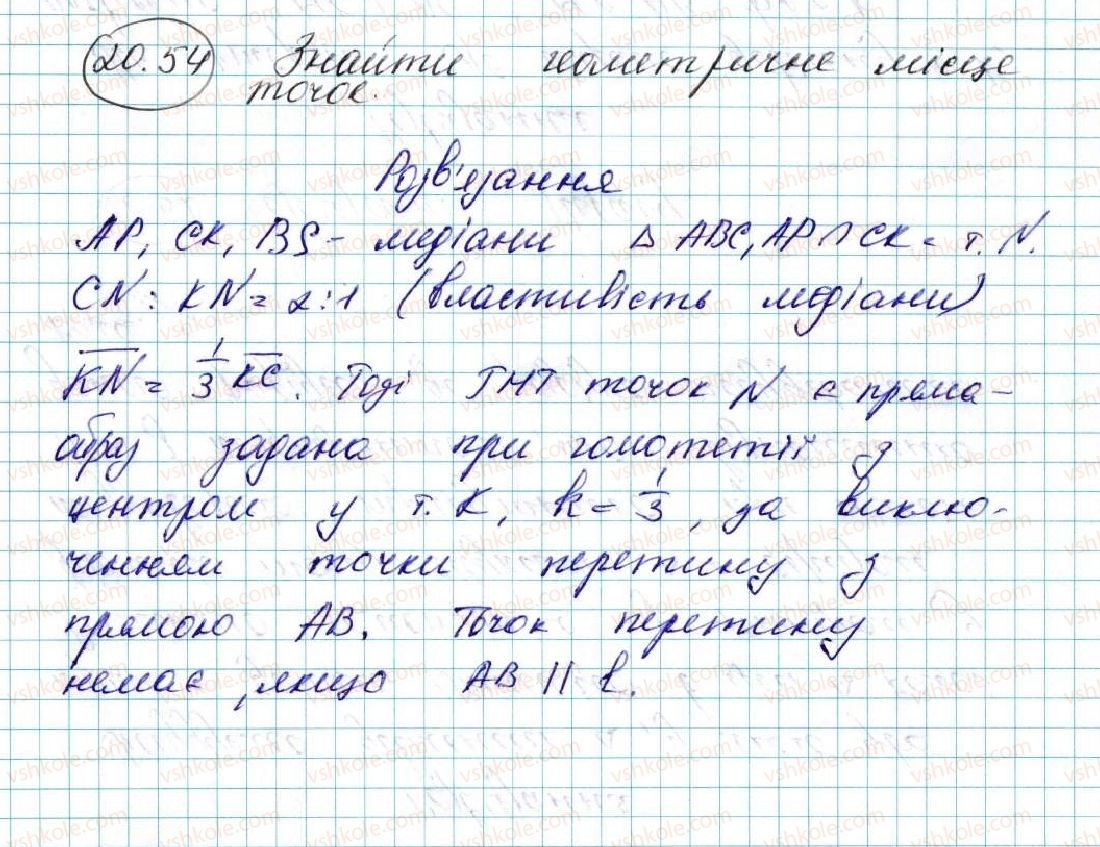 20.54 Знайти геометричне місце
точок.
Розв'язання
AP, CK, BS - медіани △ ABC, AP ∩ CK = т. N.
CN : KN = 2:1 (властивість медіани)
KN = 1/3 KC. Тоді ГМТ точок N є пряма-
образ задана при гомотетії з
центром у т. K, k = 1/3, за виклю-
ченням точки перетину з
прямою AB. Точок перетину
немає, якщо AB || l.